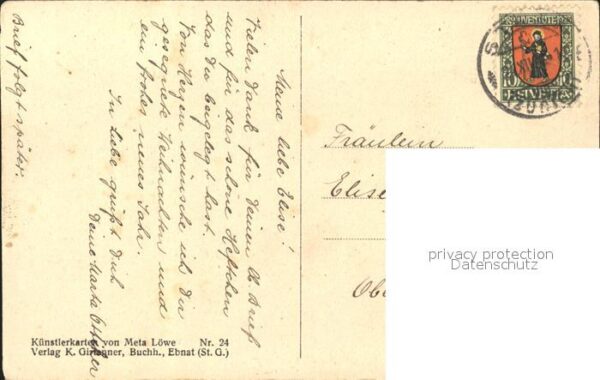 Meine liebe Elise!
Vielen Dank für Deinen lb. Brief
und für das schöne Heftchen
das Du beigelegt hast.
Von Herzen wünsche ich Dir
gesegnete Weihnachten und
ein frohes neues Jahr.
In Liebe grüßt Dich
Deine Marta
Brief folgt später.
Künstlerkarten von Meta Löwe Nr. 24
Verlag K. Girtanner, Buchh., Ebnat (St. G.)
Fräulein
Elise
privacy protection
Datenschutz
PRO JUVENTUTE
10 10
HELVETIA
(ZÜRICH)